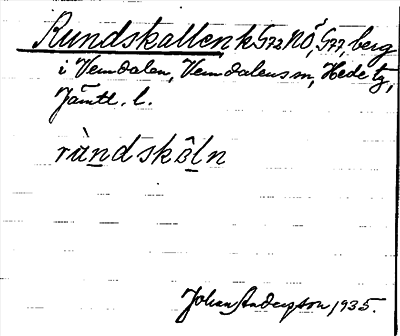 Rundskallen k G72 NÖ, G77, berg
i Vemdalen, Vemdalens sn, Hede tg,
Jämtl. l.
ràndskôln
Johan Andersson 1935.